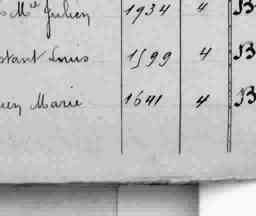 Mel Julien 1934 4 B
stant Louis 1599 4 B
ien Marie 1641 4 B